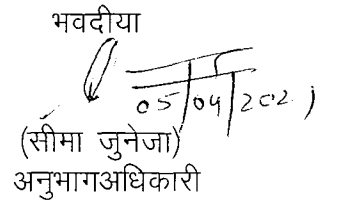 भवदीया
05/04/2021
(सीमा जुनेजा)
अनुभागअधिकारी